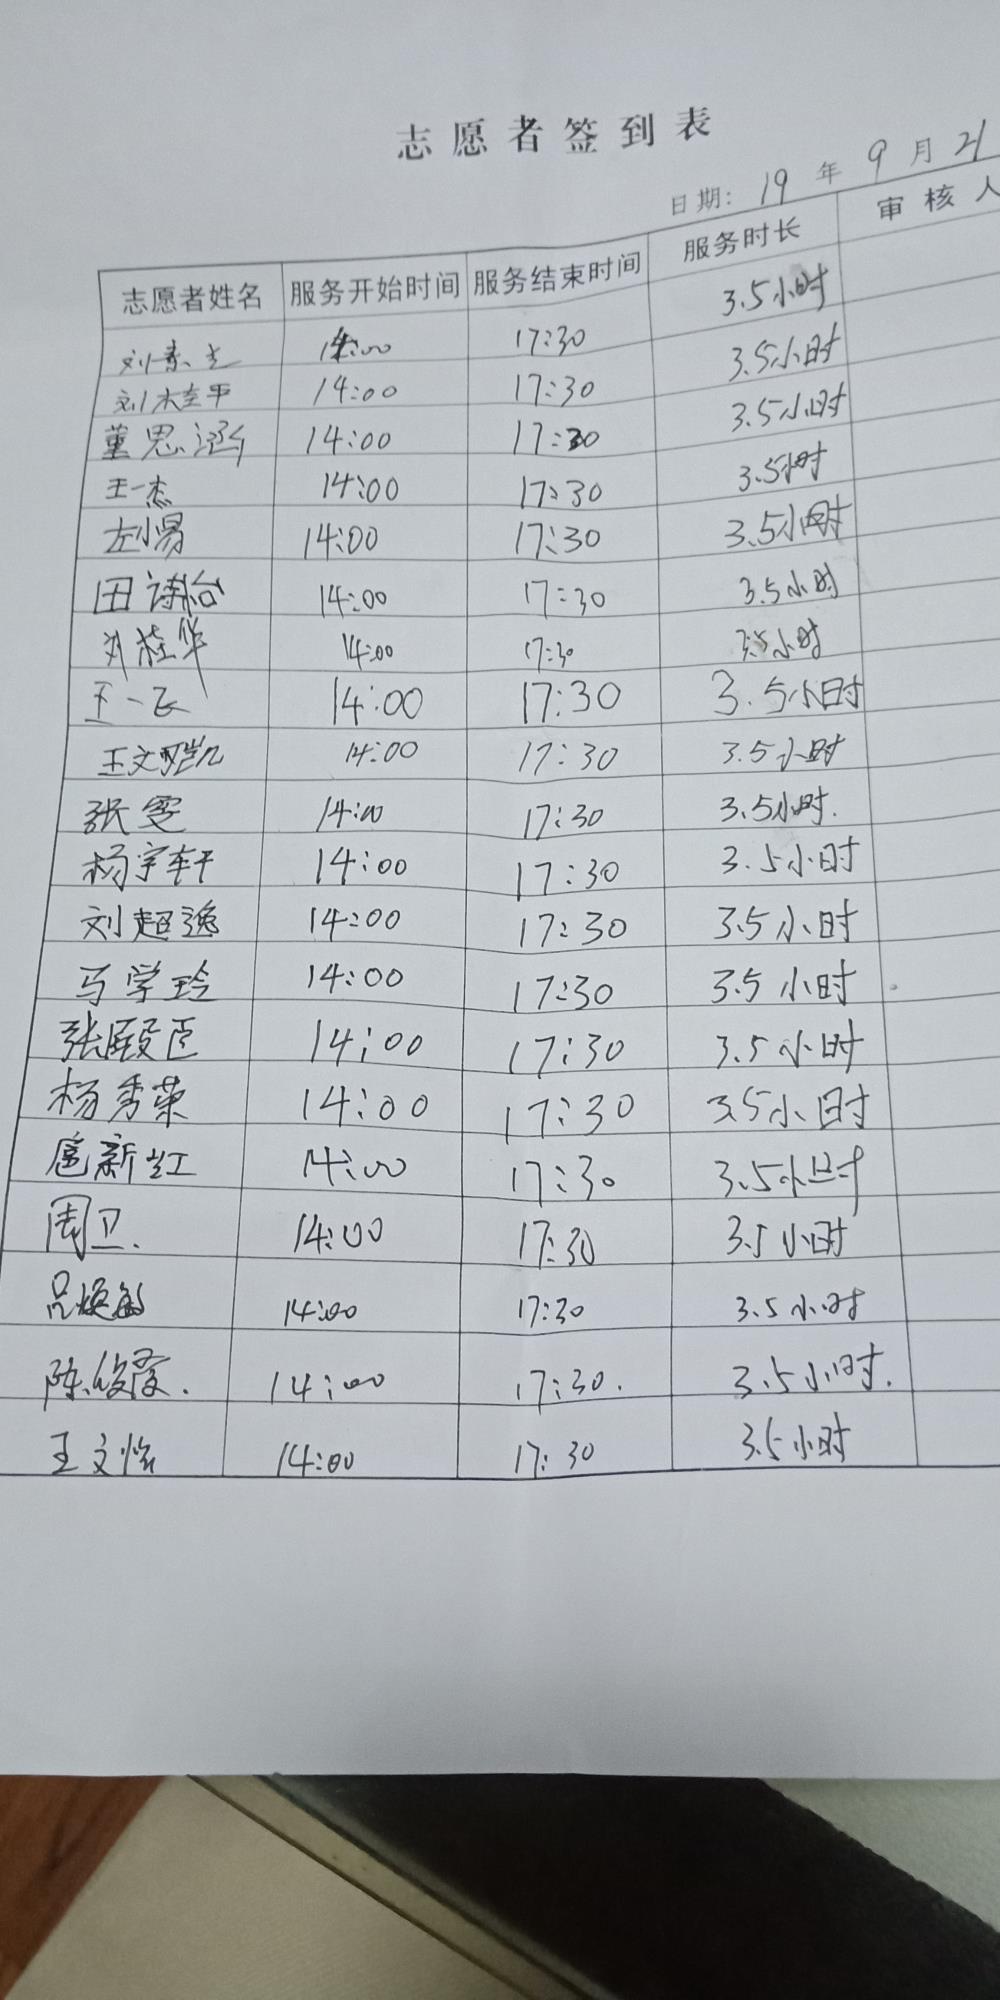 志愿者签到表
日期: 19 年 9 月 21
志愿者姓名 服务开始时间 服务结束时间 服务时长 审核人
14:00 17:30 3.5小时
刘桂平 14:00 17:30 3.5小时
董思涵 14:00 17:30 3.5小时
王一杰 14:00 17:30 3.5小时
左小易 14:00 17:30 3.5小时
田诗怡 14:00 17:30 3.5小时
刘桂华 14:00 17:30 3.5小时
王一飞 14:00 17:30 3.5小时
王文凯 14:00 17:30 3.5小时
张雯 14:00 17:30 3.5小时.
杨宇轩 14:00 17:30 3.5小时
刘超逸 14:00 17:30 3.5小时
马学玲 14:00 17:30 3.5小时
张殿臣 14:00 17:30 3.5小时
杨秀荣 14:00 17:30 3.5小时
扈新红 14:00 17:30 3.5小时
周卫. 14:00 17:30 3.5小时
吕焕敏 14:00 17:30 3.5小时
陈俊霞. 14:00 17:30. 3.5小时.
王文怡 14:00 17:30 3.5小时